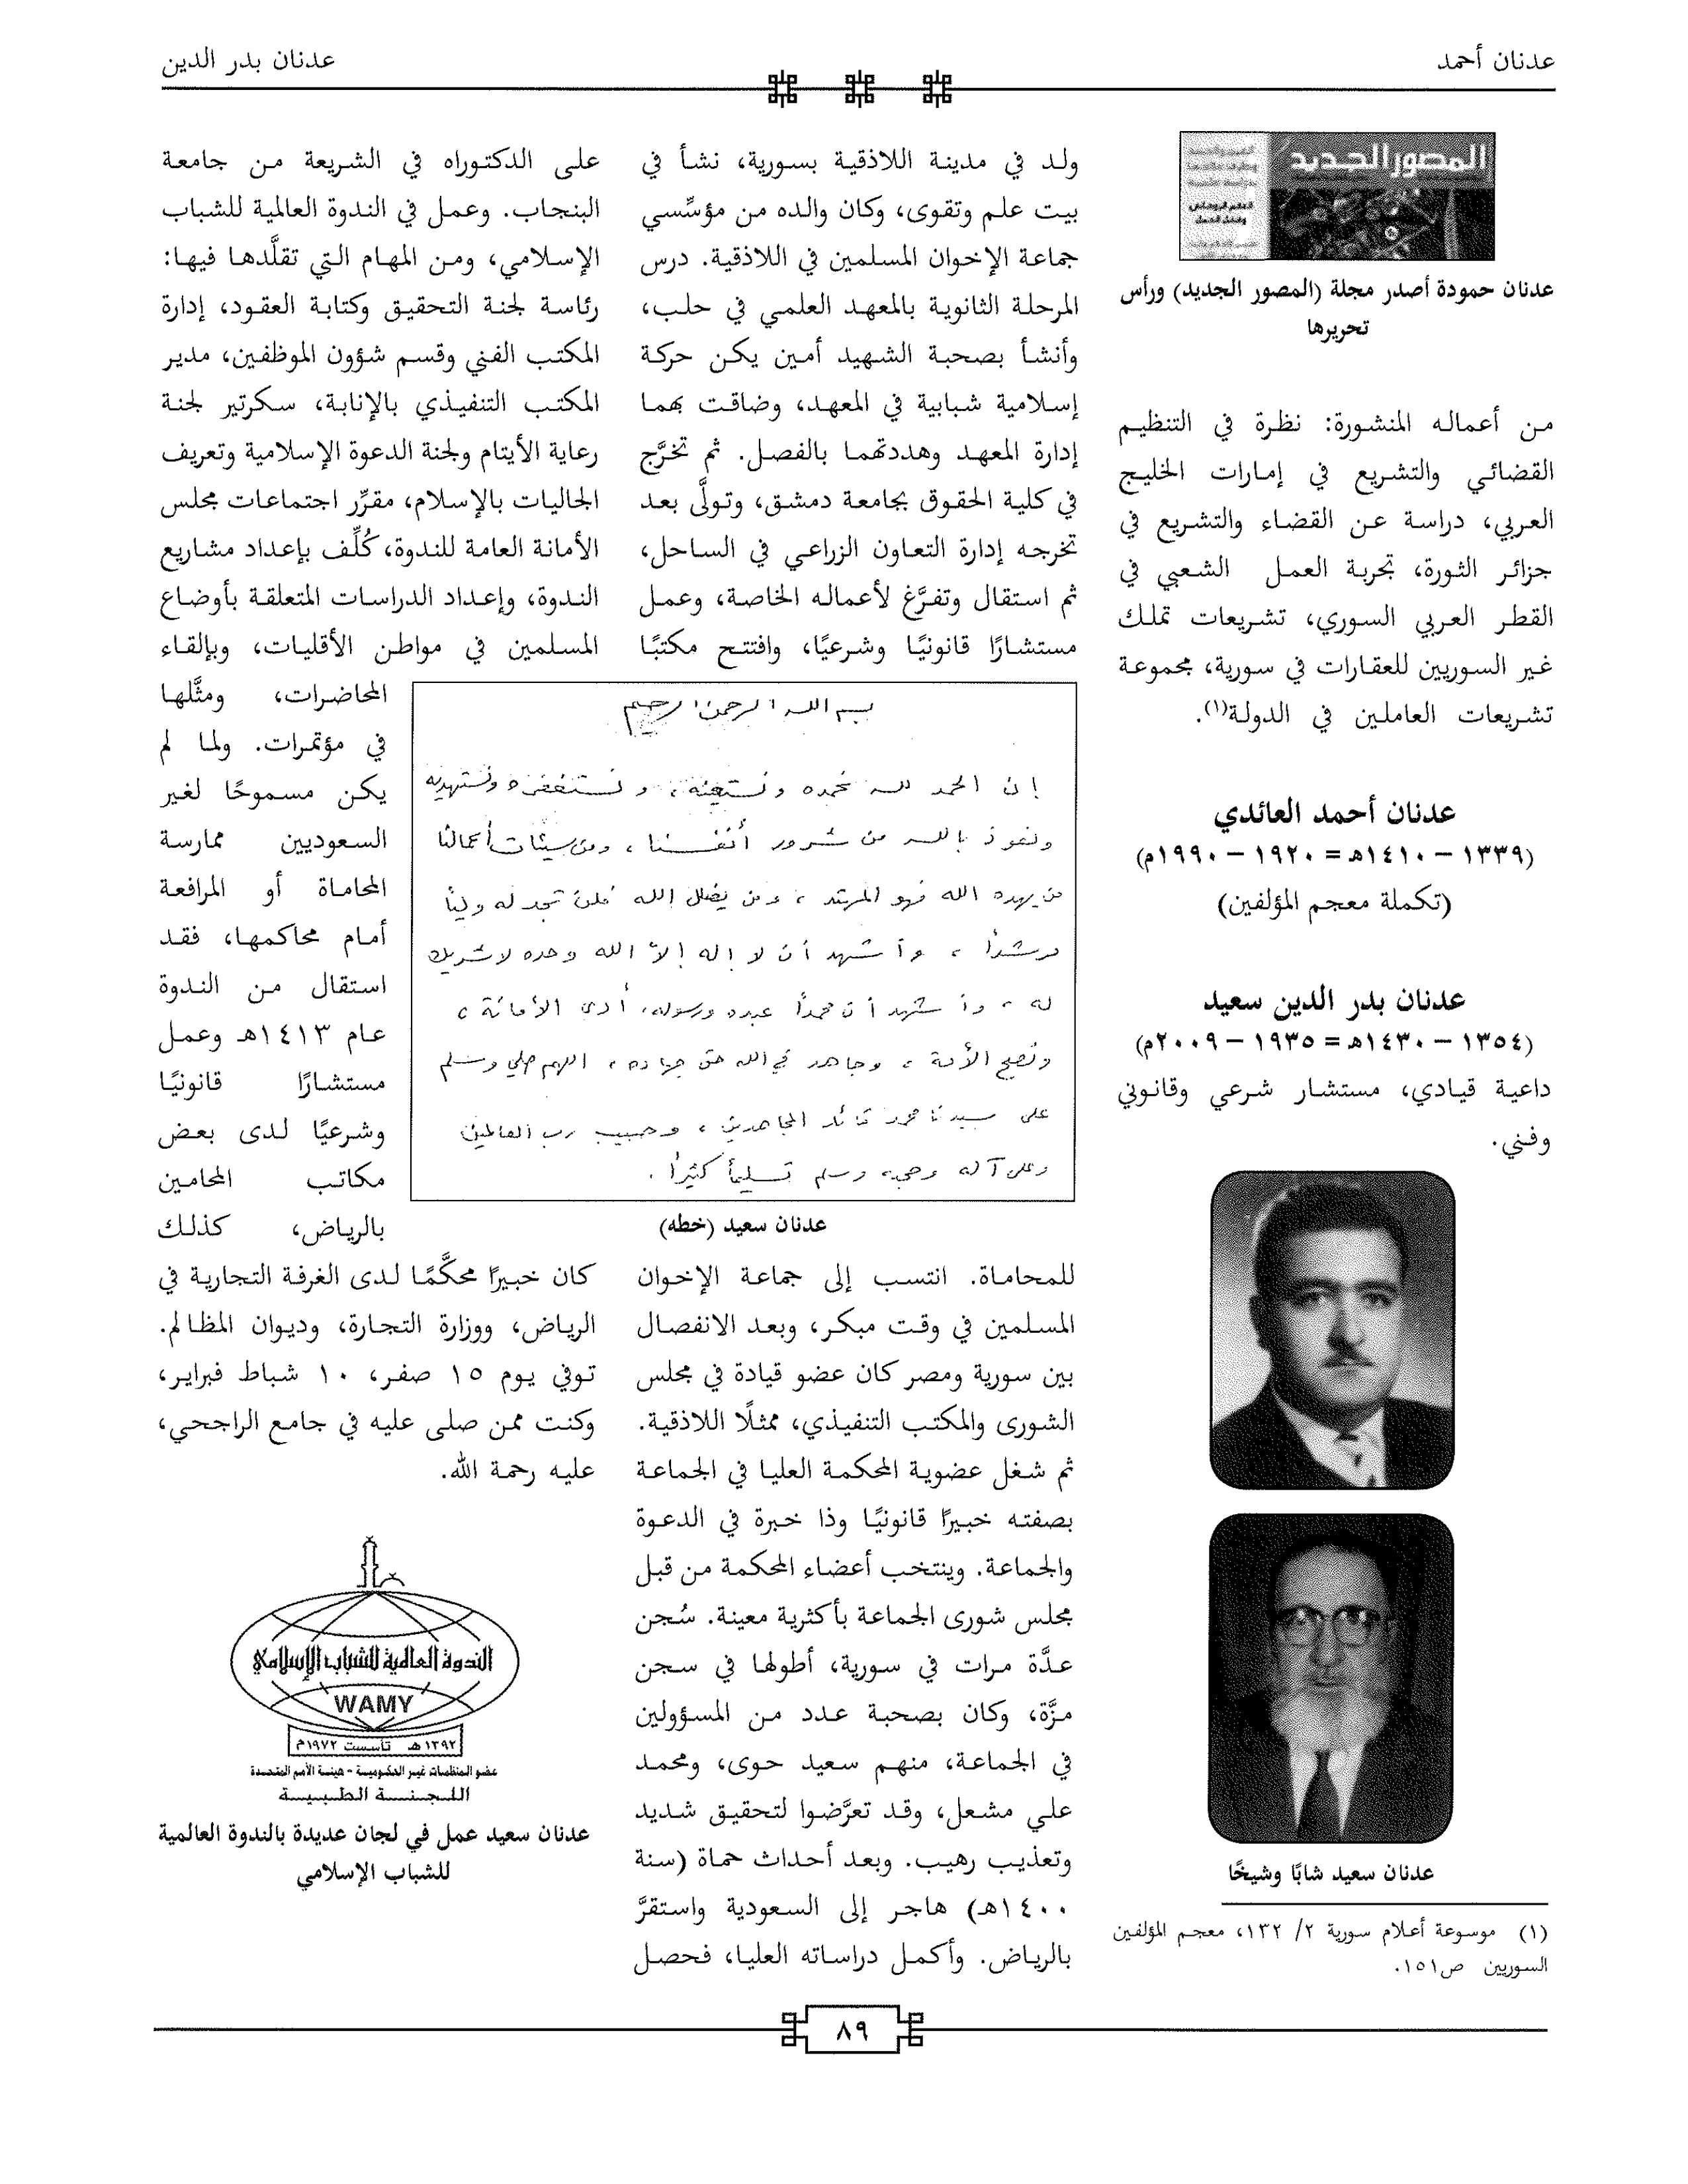 عدنان أحمد
عدنان بدر الدين
المصور الجديد
عدنان حمودة أصدر مجلة (المصور الجديد) ورأس
تحريرها
من أعماله المنشورة: نظرة في التنظيم
القضائي والتشريع في إمارات الخليج
العربي، دراسة عن القضاء والتشريع في
جزائر الثورة، تجربة العمل الشعبي في
القطر العربي السوري، تشريعات تملك
غير السوريين للعقارات في سورية، مجموعة
تشريعات العاملين في الدولة(١).
عدنان أحمد العائدي
(١٣٣٩ – ١٤١٠هـ = ١٩٢٠ – ١٩٩٠م)
(تكملة معجم المؤلفين)
عدنان بدر الدين سعيد
(١٣٥٤ – ١٤٣٠هـ = ١٩٣٥ – ٢٠٠٩م)
داعية قيادي، مستشار شرعي وقانوني
وفني.
عدنان سعيد شابًا وشيخًا
(١) موسوعة أعلام سورية ٢/ ١٣٢، معجم المؤلفين
السوريين ص١٥١.
ولد في مدينة اللاذقية بسورية، نشأ في
بيت علم وتقوى، وكان والده من مؤسِّسي
جماعة الإخوان المسلمين في اللاذقية. درس
المرحلة الثانوية بالمعهد العلمي في حلب،
وأنشأ بصحبة الشهيد أمين يكن حركة
إسلامية شبابية في المعهد، وضاقت بهما
إدارة المعهد وهددتهما بالفصل. ثم تخرَّج
في كلية الحقوق بجامعة دمشق، وتولَّى بعد
تخرجه إدارة التعاون الزراعي في الساحل،
ثم استقال وتفرَّغ لأعماله الخاصة، وعمل
مستشارًا قانونيًا وشرعيًا، وافتتح مكتبًا
بسم الله الرحمن الرحيم
إن الحمد لله نحمده ونستعينه، ونستغفره ونستهديه
ونعوذ بالله من شرور أنفسنا، ومن سيئات أعمالنا
من يهده الله فهو المهتد، ومن يضلل الله فلن تجد له وليا
مرشدا، وأشهد أن لا إله إلا الله وحده لا شريك
له، وأشهد أن محمدا عبده ورسوله، أدى الأمانة،
ونصح الأمة، وجاهد في الله حق جهاده، اللهم صلي وسلم
على سيدنا محمد قائد المجاهدين، وحبيب رب العالمين
وعلى آله وصحبه وسلم تسليماً كثيراً.
عدنان سعيد (خطه)
للمحاماة. انتسب إلى جماعة الإخوان
المسلمين في وقت مبكر، وبعد الانفصال
بين سورية ومصر كان عضو قيادة في مجلس
الشورى والمكتب التنفيذي، ممثلًا اللاذقية.
ثم شغل عضوية المحكمة العليا في الجماعة
بصفته خبيرًا قانونيًا وذا خبرة في الدعوة
والجماعة. وينتخب أعضاء المحكمة من قبل
مجلس شورى الجماعة بأكثرية معينة. سُجن
عدَّة مرات في سورية، أطولها في سجن
مزَّة، وكان بصحبة عدد من المسؤولين
في الجماعة، منهم سعيد حوى، ومحمد
علي مشعل، وقد تعرَّضوا لتحقيق شديد
وتعذيب رهيب. وبعد أحداث حماة (سنة
١٤٠٠هـ) هاجر إلى السعودية واستقرَّ
بالرياض. وأكمل دراساته العليا، فحصل
على الدكتوراه في الشريعة من جامعة
البنجاب. وعمل في الندوة العالمية للشباب
الإسلامي، ومن المهام التي تقلَّدها فيها:
رئاسة لجنة التحقيق وكتابة العقود، إدارة
المكتب الفني وقسم شؤون الموظفين، مدير
المكتب التنفيذي بالإنابة، سكرتير لجنة
رعاية الأيتام ولجنة الدعوة الإسلامية وتعريف
الجاليات بالإسلام، مقرِّر اجتماعات مجلس
الأمانة العامة للندوة، كُلِّف بإعداد مشاريع
الندوة، وإعداد الدراسات المتعلقة بأوضاع
المسلمين في مواطن الأقليات، وبإلقاء
المحاضرات، ومثَّلها
في مؤتمرات. ولما لم
يكن مسموحًا لغير
السعوديين ممارسة
المحاماة أو المرافعة
أمام محاكمها، فقد
استقال من الندوة
عام ١٤١٣هـ وعمل
مستشارًا قانونيًا
وشرعيًا لدى بعض
مكاتب المحامين
بالرياض، كذلك
كان خبيرًا محكَّمًا لدى الغرفة التجارية في
الرياض، ووزارة التجارة، وديوان المظالم.
توفي يوم ١٥ صفر، ١٠ شباط فبراير،
وكنت ممن صلى عليه في جامع الراجحي،
عليه رحمة الله.
الندوة العالمية للشباب الإسلامي
WAMY
١٣٩٢هـ تأسست ١٩٧٢م
عضو المنظمات غير الحكومية - هيئة الأمم المتحدة
اللجنة الطبية
عدنان سعيد عمل في لجان عديدة بالندوة العالمية
للشباب الإسلامي
٨٩